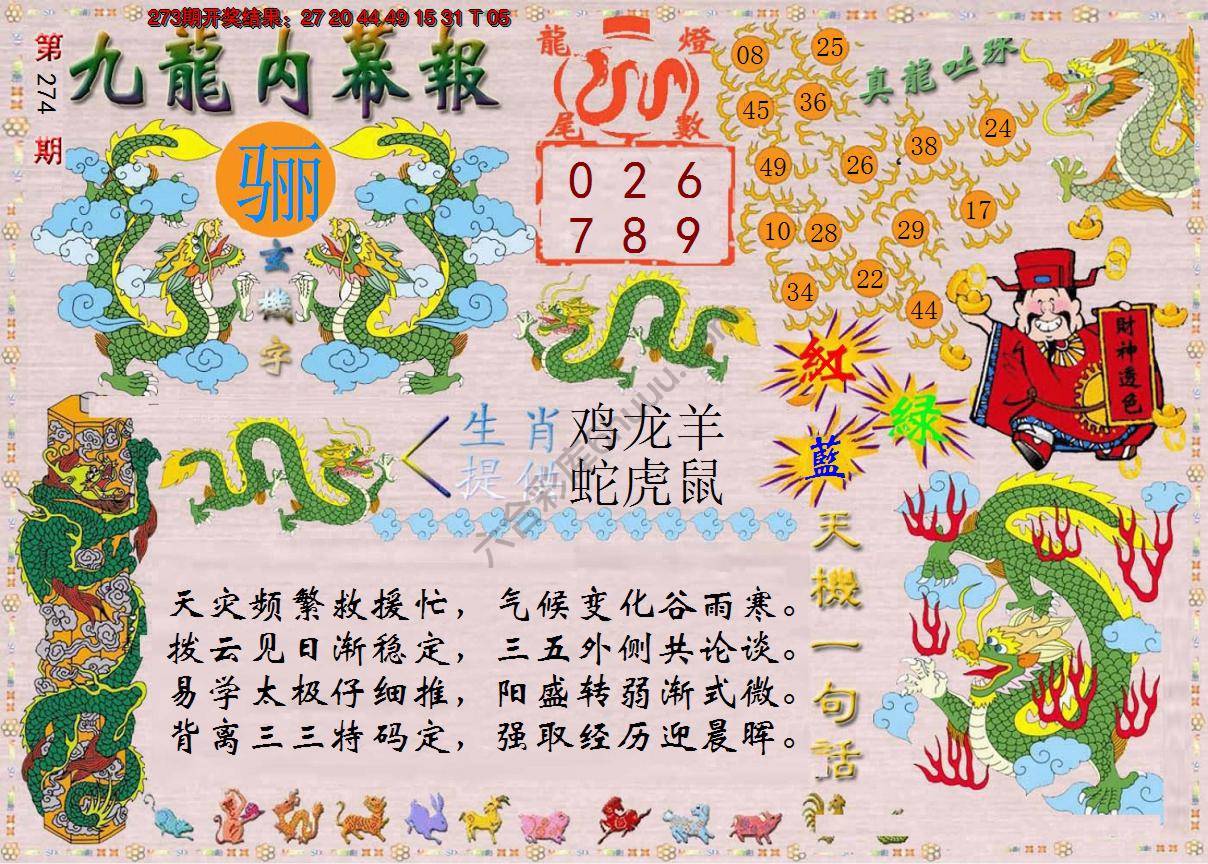 273期开奖结果：27 20 44 49 15 31 T 05
第274期
九龍内幕報
骊
玄機字
龍燈
尾數
0 2 6
7 8 9
真龍吐珠
08 25
45 36
49 26 38 24
10 28 29 17
34 22 44
財神透色
紅
綠
藍
生肖 鸡龙羊
提供 蛇虎鼠
天機一句話
天灾频繁救援忙，气候变化谷雨寒。
拨云见日渐稳定，三五外侧共论谈。
易学太极仔细推，阳盛转弱渐式微。
背离三三特码定，强取经历迎晨晖。